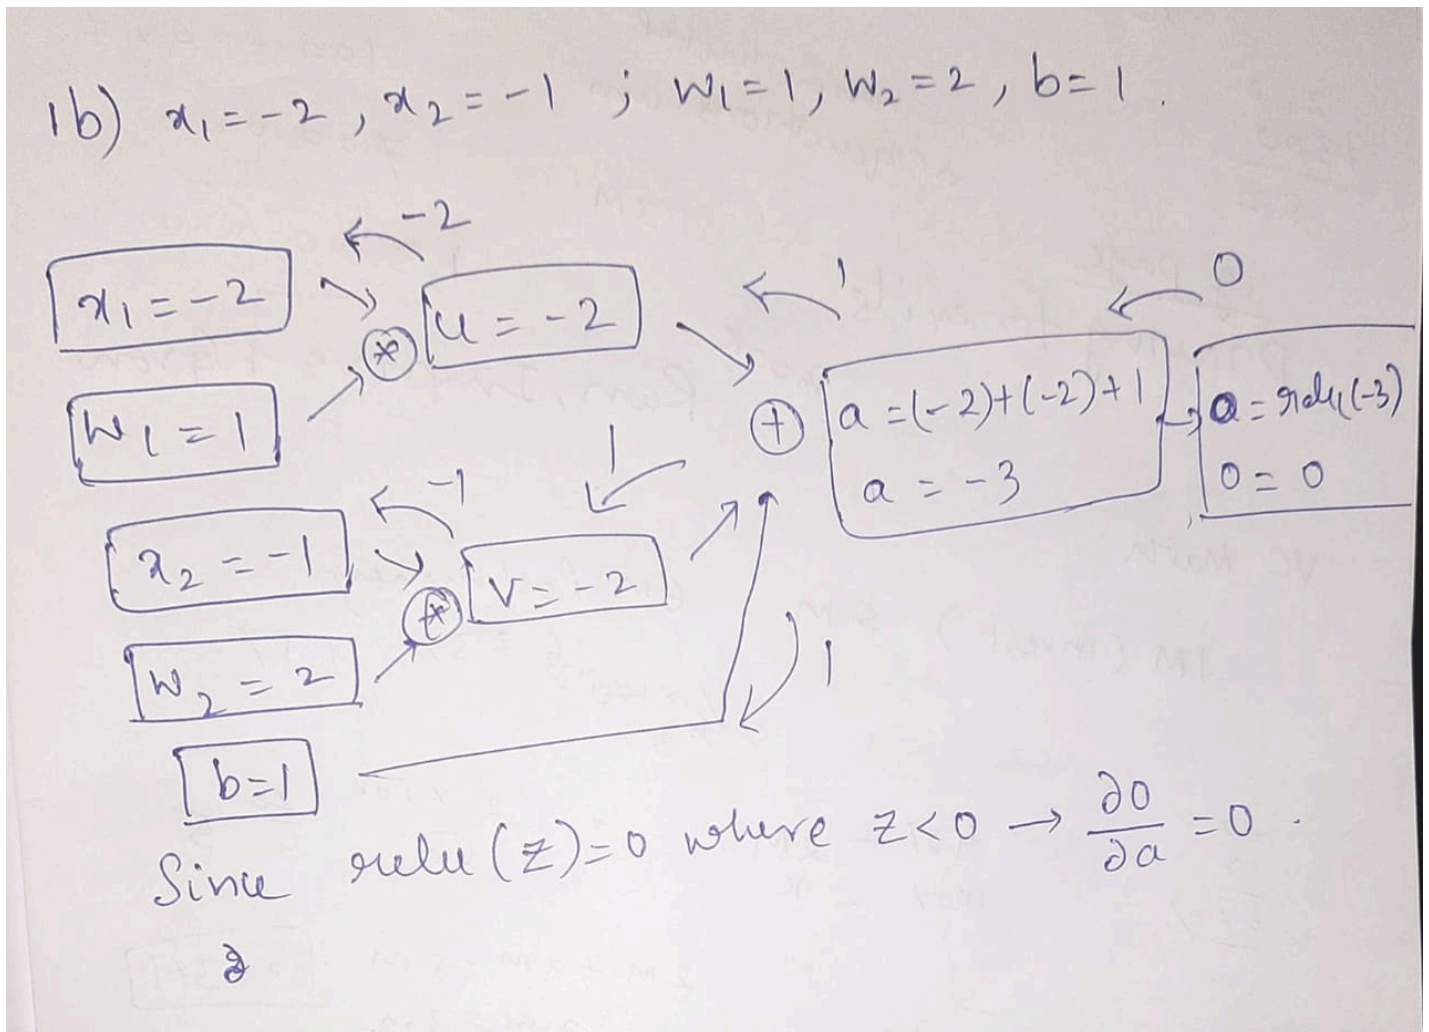 1b) x₁=-2, x₂=-1 ; W₁=1, W₂=2, b=1.
-2
x₁=-2
*
u=-2
1
0
W₁=1
+
a=(-2)+(-2)+1
a=-3
o=relu(-3)
o=0
1
-1
x₂=-1
*
V=-2
W₂=2
1
b=1
Since relu(z)=0 where z<0 → ∂o/∂a = 0.
∂